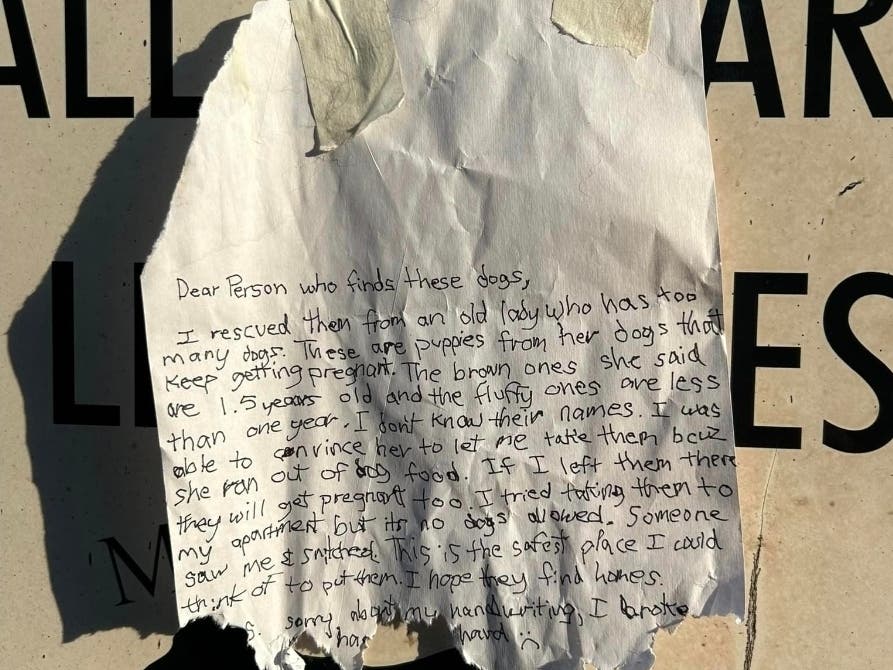 ALL AR
Dear Person who finds these dogs,
I rescued them from an old lady who has too
many dogs. These are puppies from her dogs that
keep getting pregnant. The brown ones she said
are 1.5 years old and the fluffy ones are less
than one year. I dont know their names. I was
able to convince her to let me take them bcuz
she ran out of dog food. If I left them there
they will get pregnant too. I tried taking them to
my apartment but its no dogs allowed. Someone
saw me & snitched. This is the safest place I could
think of to put them. I hope they find homes.
S. sorry about my handwriting, I broke
hand :(
L ES
M